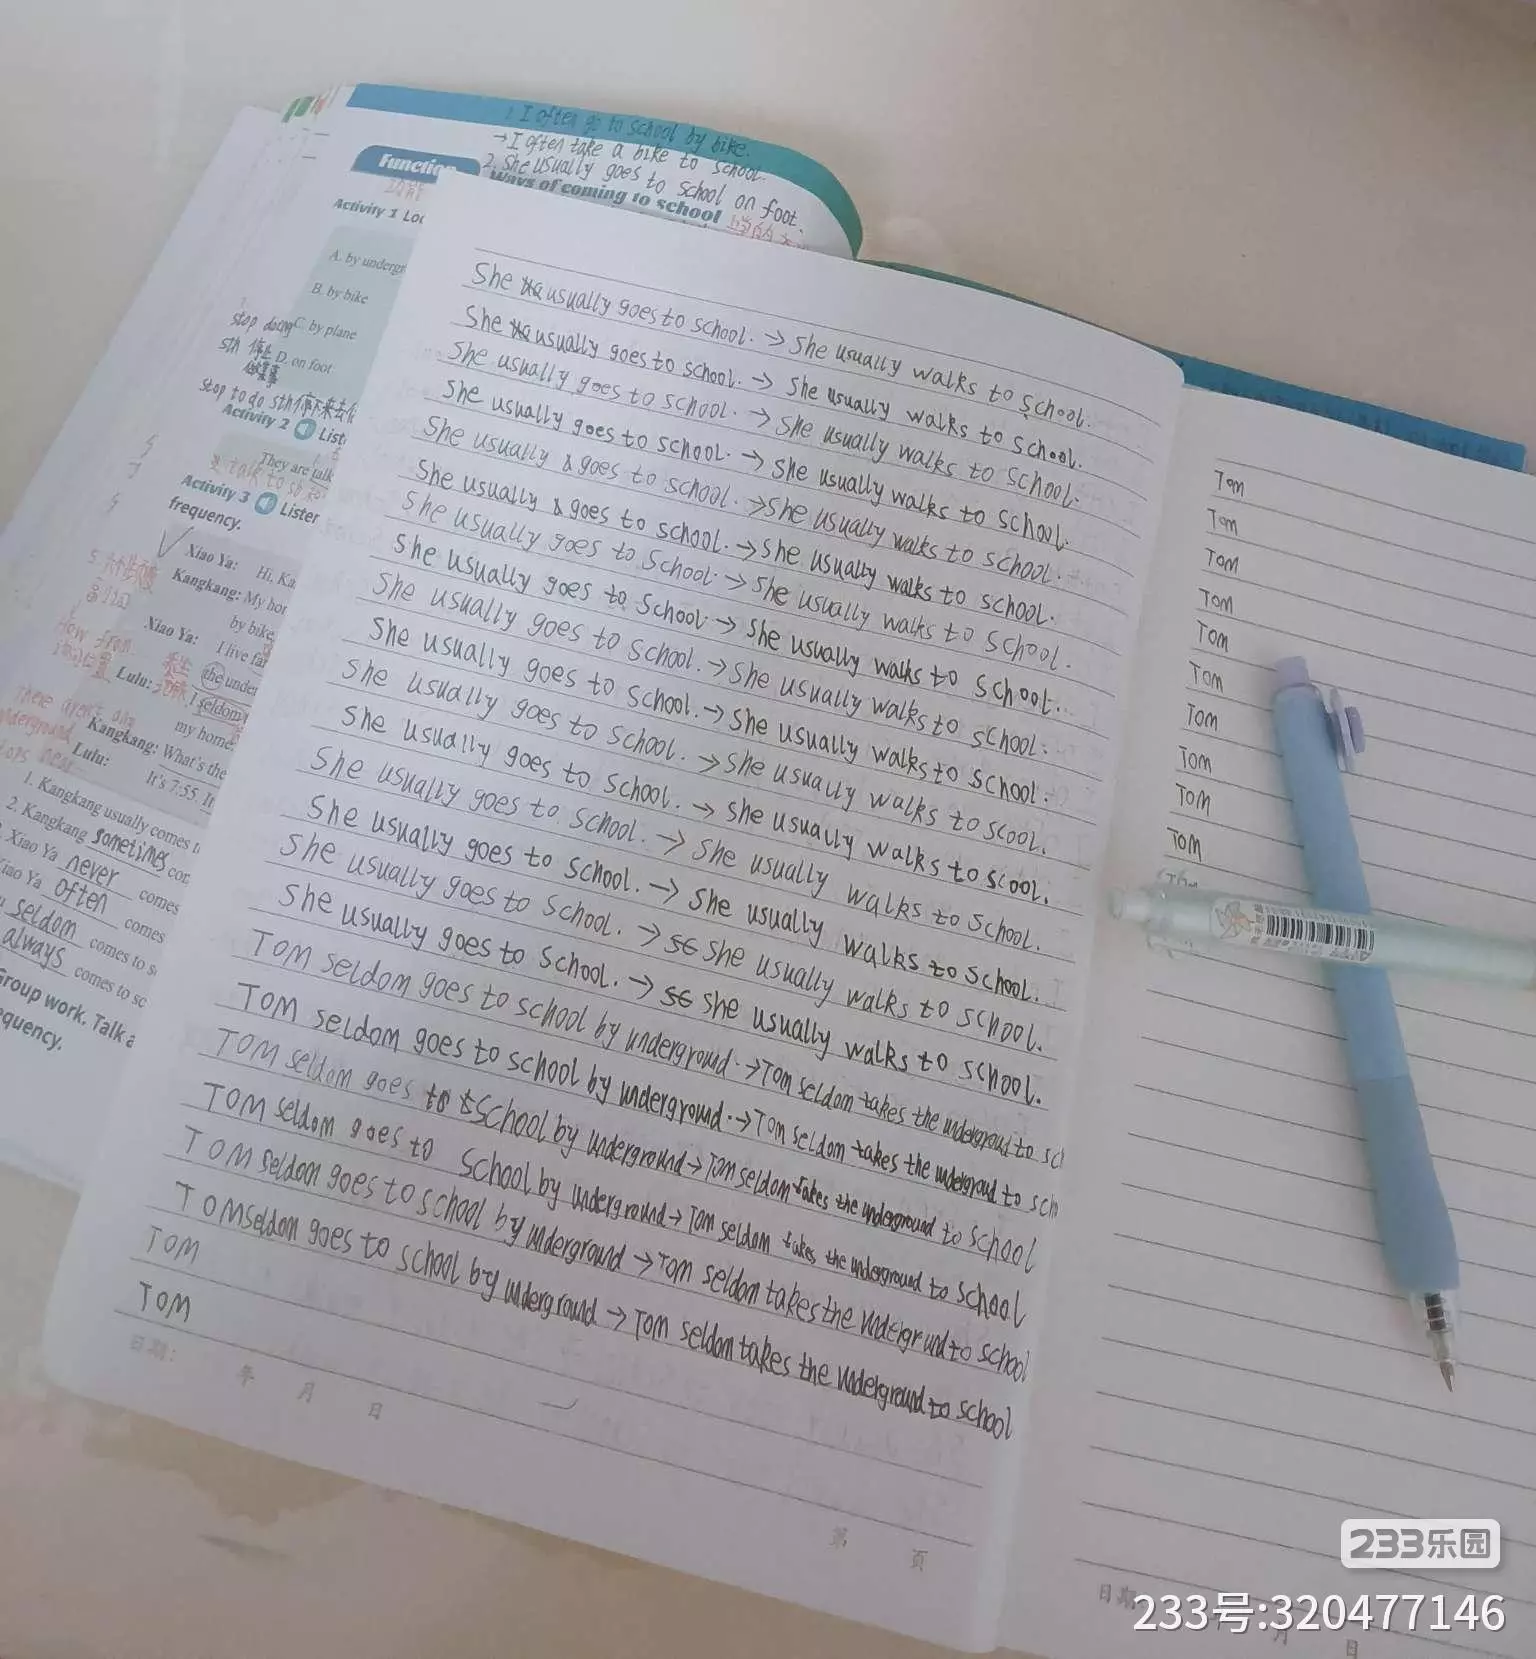 1. I often go to school by bike.
→ I often take a bike to school.
2. She usually goes to school on foot.
Function
功能
Ways of coming to school
Activity 1
A. by
B. by bike
C. by plane
D. on foot
stop doing
sth 停止
做某事
stop to do sth 停下来去
Activity 2
They are
talk to sb
Activity 3 Listen
frequency.
Xiao Ya: Hi,
Kangkang: My
by bike
Xiao Ya: I live
the
Lulu: I seldom
my home.
Kangkang: What's the
Lulu: It's 7:55.
There aren't any
underground
1. Kangkang usually comes
2. Kangkang sometimes
Xiao Ya never comes
Xiao Ya often comes
seldom comes to
always comes to
Group work. Talk
She usually goes to school. → She usually walks to school.
She usually goes to school. → She usually walks to school.
She usually goes to school. → She usually walks to school.
She usually goes to school. → She usually walks to school.
She usually goes to school. → She usually walks to school.
She usually goes to school. → She usually walks to school.
She usually goes to school. → She usually walks to school.
She usually goes to school. → She usually walks to school.
She usually goes to school. → She usually walks to school.
She usually goes to school. → She usually walks to school.
She usually goes to school. → She usually walks to scool.
She usually goes to school. → She usually walks to scool.
She usually goes to school. → She usually walks to school.
She usually goes to school. → She usually walks to school.
She usually goes to school. → se she usually walks to school.
She usually goes to school. → se she usually walks to school.
TOM seldom goes to school by underground. → Tom seldom takes the undergroud to sch
TOM seldom goes to school by underground. → Tom seldom takes the undergroud to sch
TOM seldom goes to school by underground → Tom seldom takes the underground to school
TOM seldom goes to school by underground → Tom seldom takes the underground to school
TOM seldom goes to school by underground → Tom seldom takes the underground to school
TOM seldom goes to school by underground → Tom seldom takes the underground to school
TOM
TOM
日期: 年 月 日
第 页
Tom
Tom
Tom
Tom
Tom
Tom
Tom
Tom
Tom
Tom
日期 月 日
233乐园
233号:320477146